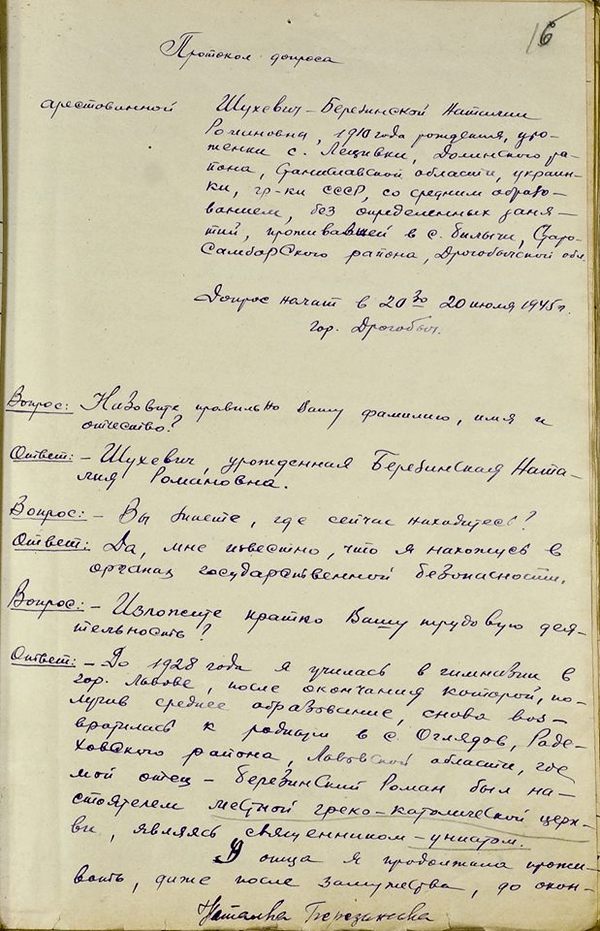 16
Протокол допроса
арестованной Шухевич-Березинской Наталии
Романовна, 1910 года рождения, уро-
женки с. Лещивки, Долинского ра-
йона, Станиславской области, украин-
ки, гр-ки СССР, со средним образо-
ванием, без определенных заня-
тий, проживавшей в с. Биличи, Старо-
Самборского района, Дрогобычской обл.
Допрос начат в 20 30 20 июля 1945 г.
гор. Дрогобыч.
Вопрос: Назовите правильно Вашу фамилию, имя и
отчество?
Ответ: – Шухевич, урожденная Березинская Ната-
лия Романовна.
Вопрос: – Вы знаете, где сейчас находитесь?
Ответ: Да, мне известно, что я нахожусь в
органах государственной безопасности.
Вопрос: – Изложите кратко Вашу трудовую дея-
тельность?
Ответ: – До 1928 года я училась в гимназии в
гор. Львове, после окончания которой, по-
лучив среднее образование, снова воз-
вратилась к родным в с. Оглядов, Раде-
ховского района, Львовской области, где
мой отец – Березинский Роман был на-
стоятелем местной греко-католической церк-
ви, являясь священником-униатом.
У отца я продолжала прожи-
вать, даже после замужества, до окон-
Наталка Березинська